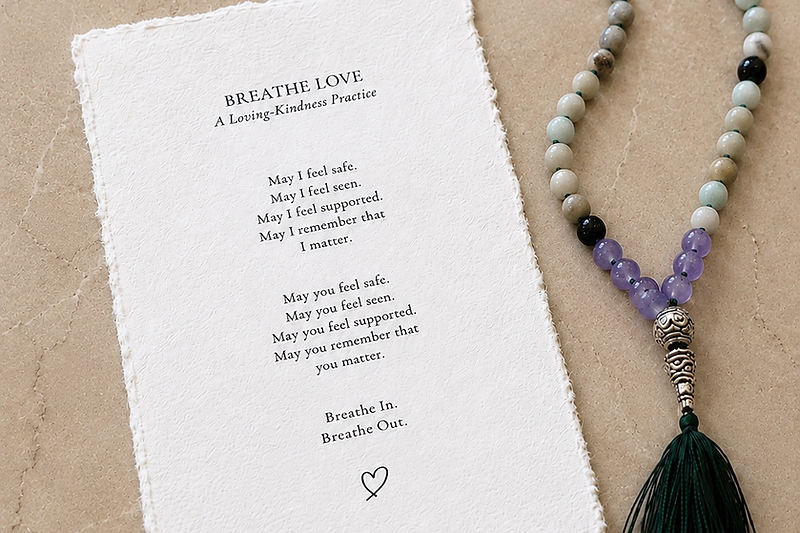 BREATHE LOVE
A Loving-Kindness Practice
May I feel safe.
May I feel seen.
May I feel supported.
May I remember that
I matter.
May you feel safe.
May you feel seen.
May you feel supported.
May you remember that
you matter.
Breathe In.
Breathe Out.